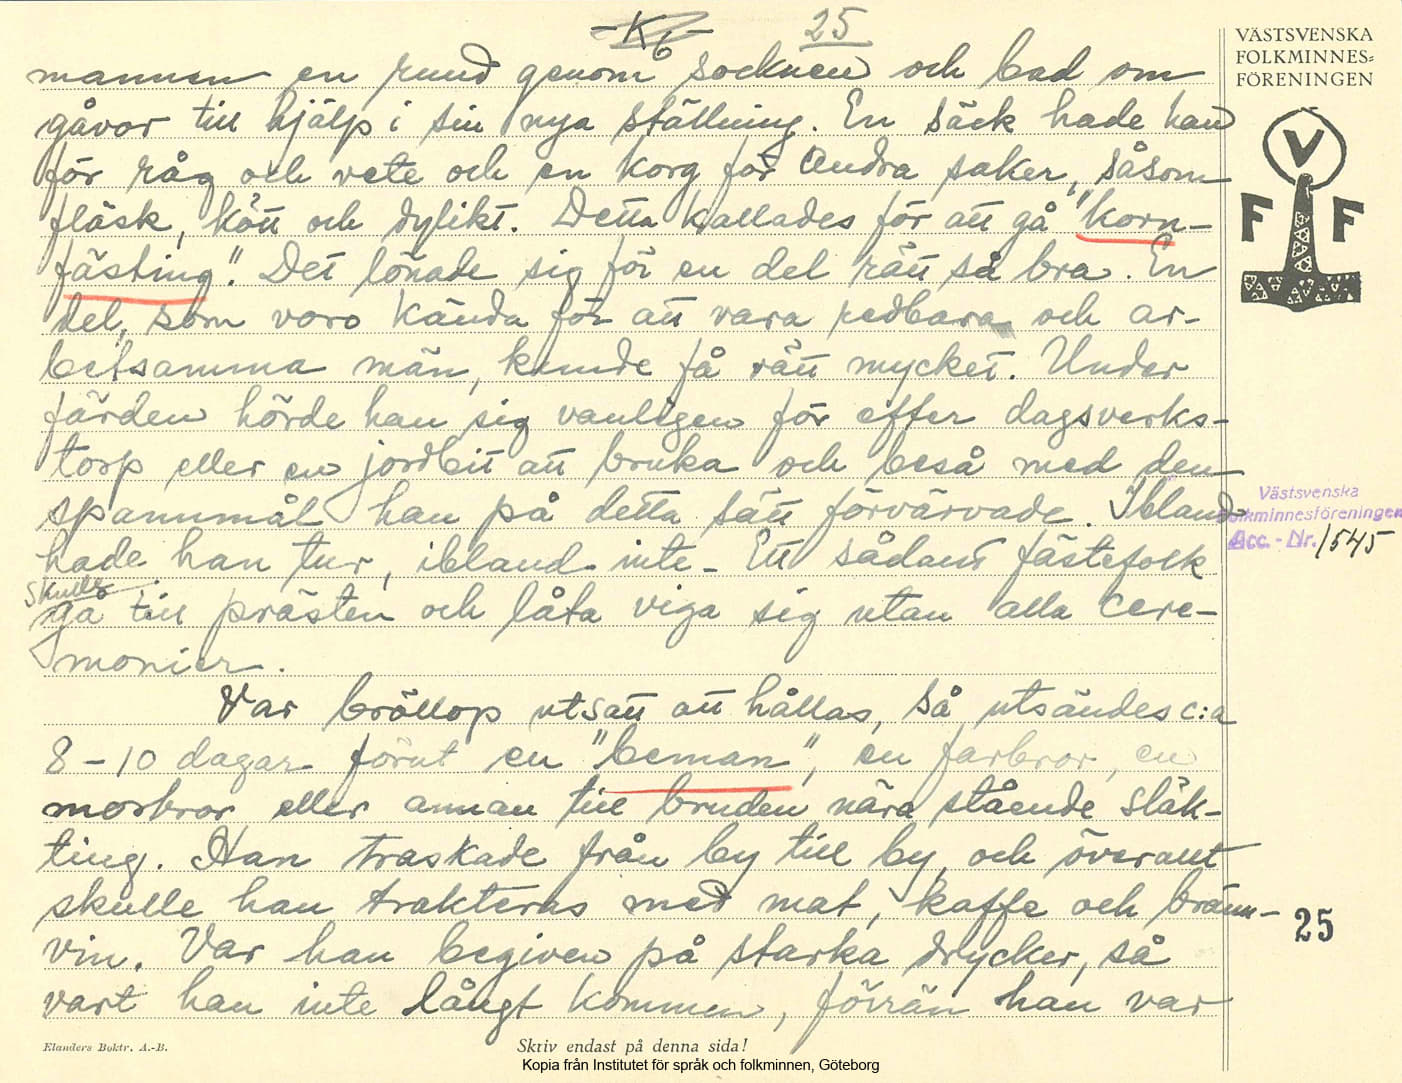 25
VÄSTSVENSKA
FOLKMINNES=
FÖRENINGEN
mannen en rund genom socknen och bad om
gåvor till hjälp i sin nya ställning. En säck hade han
för råg och vete och en korg för andra saker, såsom
fläsk, kött och dylikt. Detta kallades för att gå "korn-
fästing". Det lönade sig för en del rätt så bra. En
del, som voro kända för att vara redbara och ar-
betsamma män, kunde få rätt mycket. Under
färden hörde han sig vanligen för efter dagsverks-
torp eller en jordbit att bruka och beså med den
spannmål han på detta sätt förvärvade. Ibland
hade han tur, ibland inte. Ett sådant fästefolk
skulle
gå till prästen och låta viga sig utan alla cere-
monier.
Var bröllop utsatt att hållas, så utsändes c:a
8-10 dagar förut en "beman", en farbror, en
morbror eller annan till bruden nära stående släk-
ting. Han traskade från by till by, och överallt
skulle han trakteras med mat, kaffe och bränn-
vin. Var han begiven på starka drycker, så
vart han inte långt kommen, förrän han var
V
F F
Västsvenska
Folkminnesföreningen
Acc.-Nr. 1545
25
Elanders Boktr. A.-B.
Skriv endast på denna sida!
Kopia från Institutet för språk och folkminnen, Göteborg